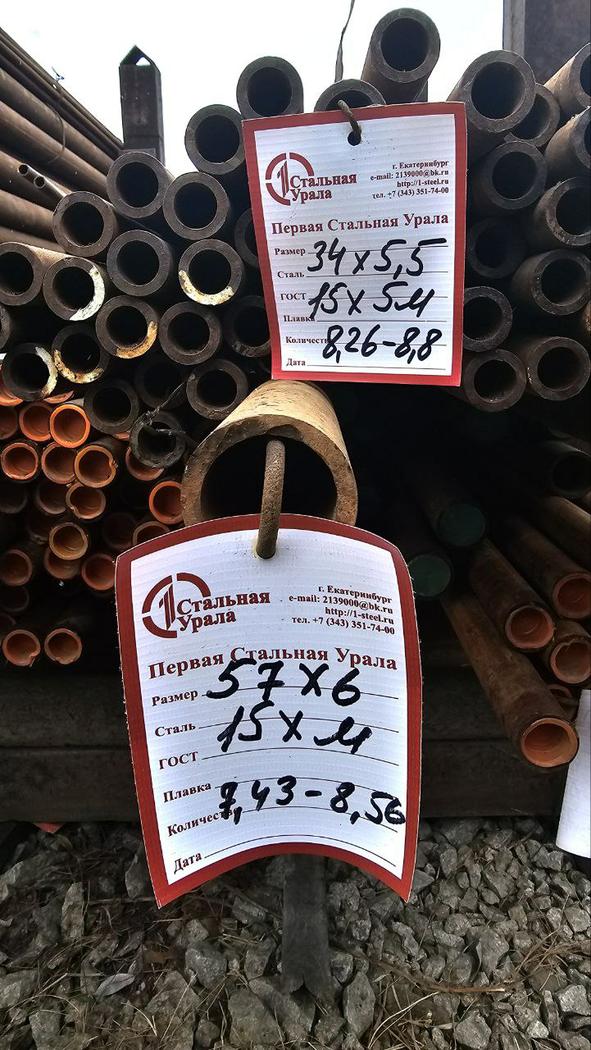 1 Стальная
Урала
г. Екатеринбург
e-mail: 2139000@bk.ru
http://1-steel.ru
тел. +7 (343) 351-74-00
Первая Стальная Урала
Размер 34 x 5,5
Сталь
ГОСТ 15 Х 5М
Плавка
Количеств 8,26-8,8
Дата
1 Стальная
Урала
г. Екатеринбург
e-mail: 2139000@bk.ru
http://1-steel.ru
тел. +7 (343) 351-74-00
Первая Стальная Урала
Размер 57 x 6
Сталь 15 Х М
ГОСТ
Плавка
Количеств 7,43-8,56
Дата